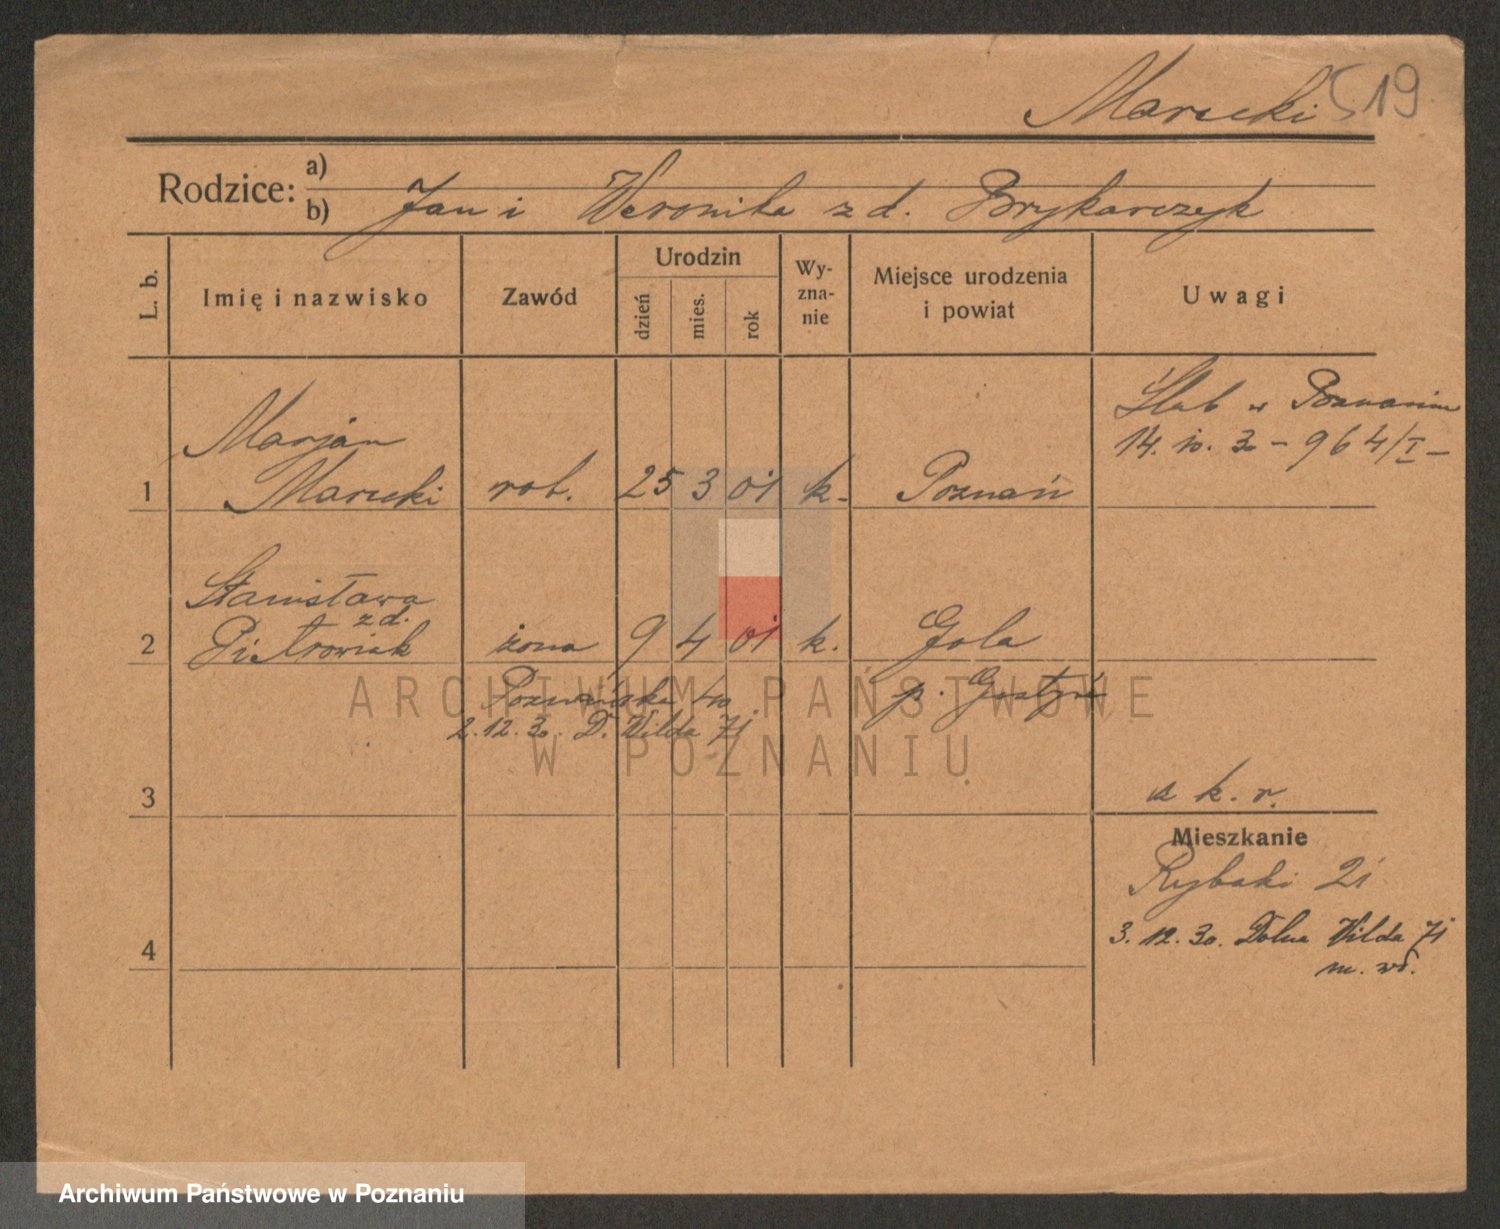 Marecki 519.
Rodzice: a)
b) Jan i Weronika z d. Brykarczyk
L. b.
Imię i nazwisko
Zawód
Urodzin
dzień
mies.
rok
Wy-
zna-
nie
Miejsce urodzenia
i powiat
Uwagi
Ślub w Poznaniu
14. 10. 30 - 964/I -
Marjan
1 Marecki rob. 25 3 01 k. Poznań
Stanisława
z d.
2 Piotrowiak żona 9 4 01 k. Gola
Poznańska 40 p. Gostyń
2.12.30. D. Wilda 71
3
k. r.
Mieszkanie
Rybaki 21
3. 12. 30. Dolna Wilda 71
4
ARCHIWUM PAŃSTWOWE
W POZNANIU
Archiwum Państwowe w Poznaniu